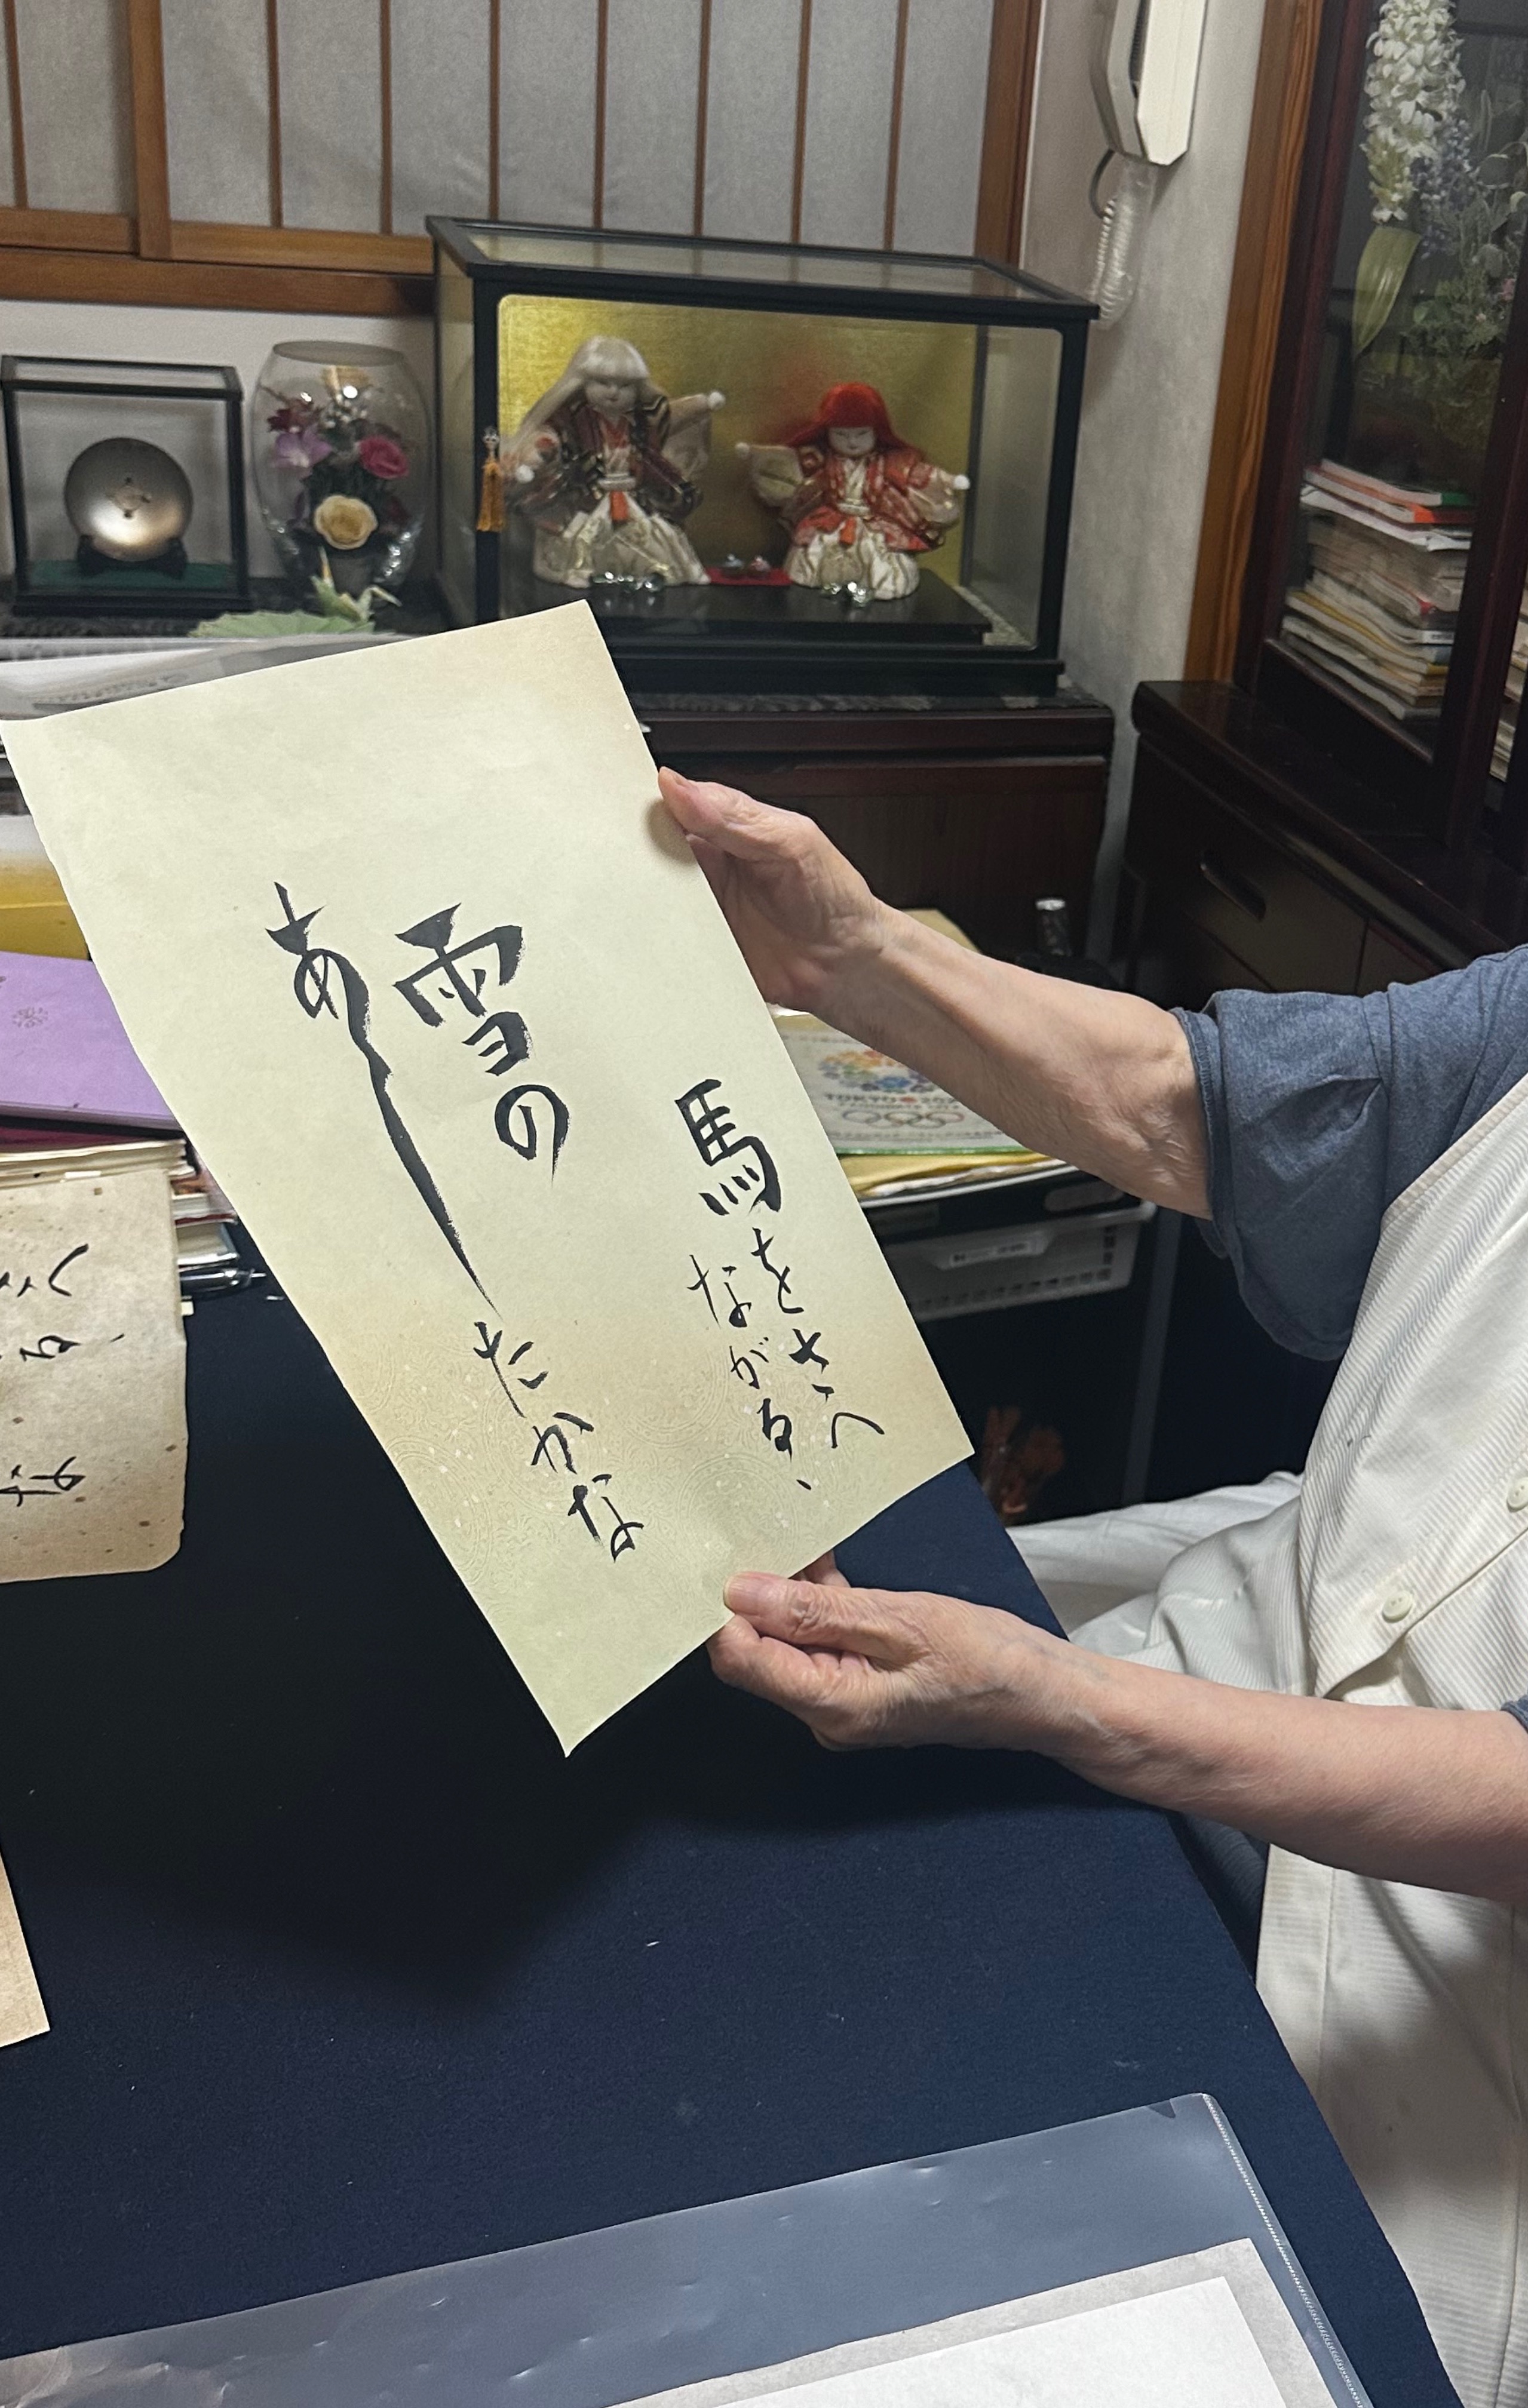 馬をさへ
ながる、
雪の
あしたかな
TOKYO 202